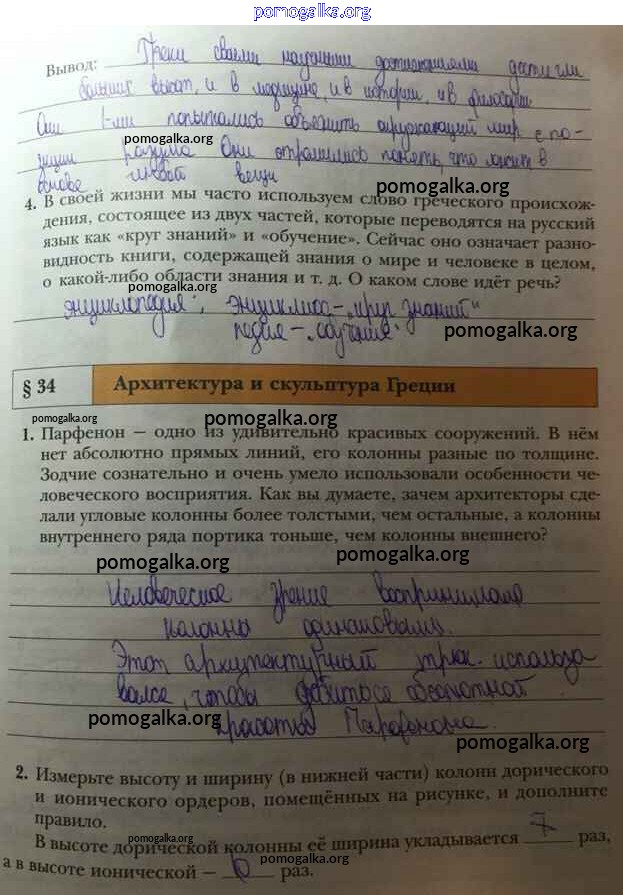 pomogalka.org
Вывод: Греки своими научными достижениями достигли
больших высот, и в медицине, и в истории, и в философии.
Они 1-ми попытались объяснить окружающий мир с по-
pomogalka.org
зиции разума Они стремились понять, что лежит в
основе любой вещи
pomogalka.org
4. В своей жизни мы часто используем слово греческого происхож-
дения, состоящее из двух частей, которые переводятся на русский
язык как «круг знаний» и «обучение». Сейчас оно означает разно-
видность книги, содержащей знания о мире и человеке в целом,
о какой-либо области знания и т. д. О каком слове идёт речь?
pomogalka.org
энциклопедия", энциклиос-„круг знаний"
педия-„обучение"
pomogalka.org
§ 34 Архитектура и скульптура Греции
pomogalka.org
pomogalka.org
1. Парфенон — одно из удивительно красивых сооружений. В нём
нет абсолютно прямых линий, его колонны разные по толщине.
Зодчие сознательно и очень умело использовали особенности че-
ловеческого восприятия. Как вы думаете, зачем архитекторы сде-
лали угловые колонны более толстыми, чем остальные, а колонны
внутреннего ряда портика тоньше, чем колонны внешнего?
pomogalka.org
pomogalka.org
Человеческое зрение воспринимало
колонны одинаковыми.
Этот архитектурный трюк использо
вался, чтобы добиться абсолютной
pomogalka.org
красоты
pomogalka.org
2. Измерьте высоту и ширину (в нижней части) колонн дорического
и ионического ордеров, помещённых на рисунке, и дополните
правило.
pomogalka.org
В высоте дорической колонны её ширина укладывается 7 раз,
pomogalka.org
а в высоте ионической — 6 раз.